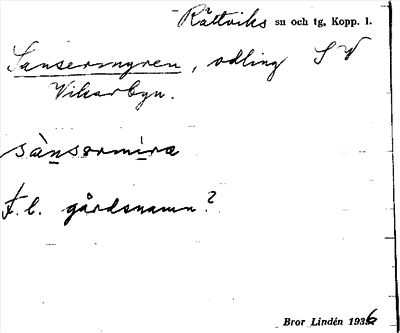 Rättviks sn och tg, Kopp. l.
Sansermyren, odling S V
Vikarbyn.
sànsərmìra
F.l. gårdsnamn?
Bror Lindén 1936